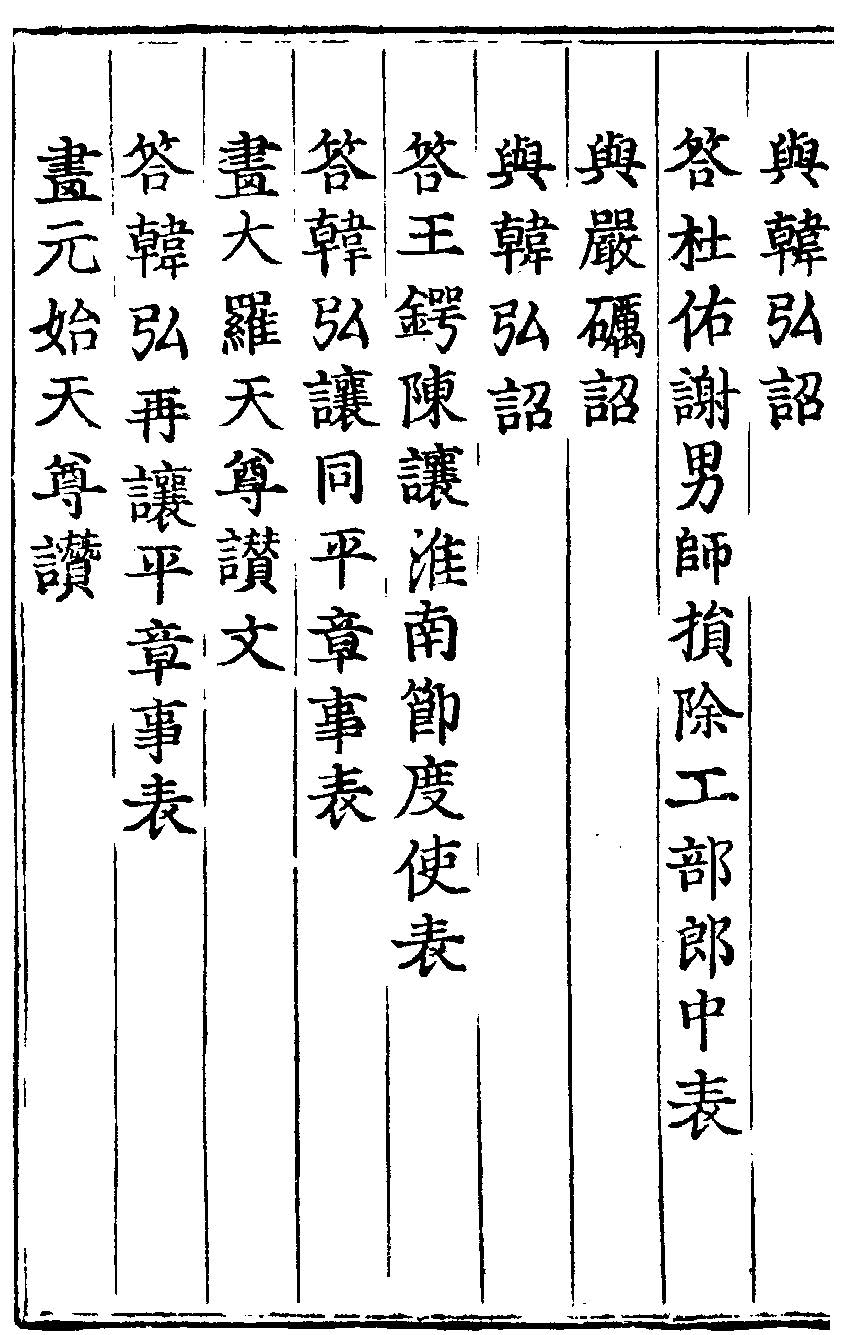 與韓弘詔
答杜佑謝男師損除工部郎中表
與嚴礪詔
與韓弘詔
答王鍔陳讓淮南節度使表
答韓弘讓同平章事表
畫大羅天尊讃文
答韓弘再讓平章事表
畫元始天尊讃